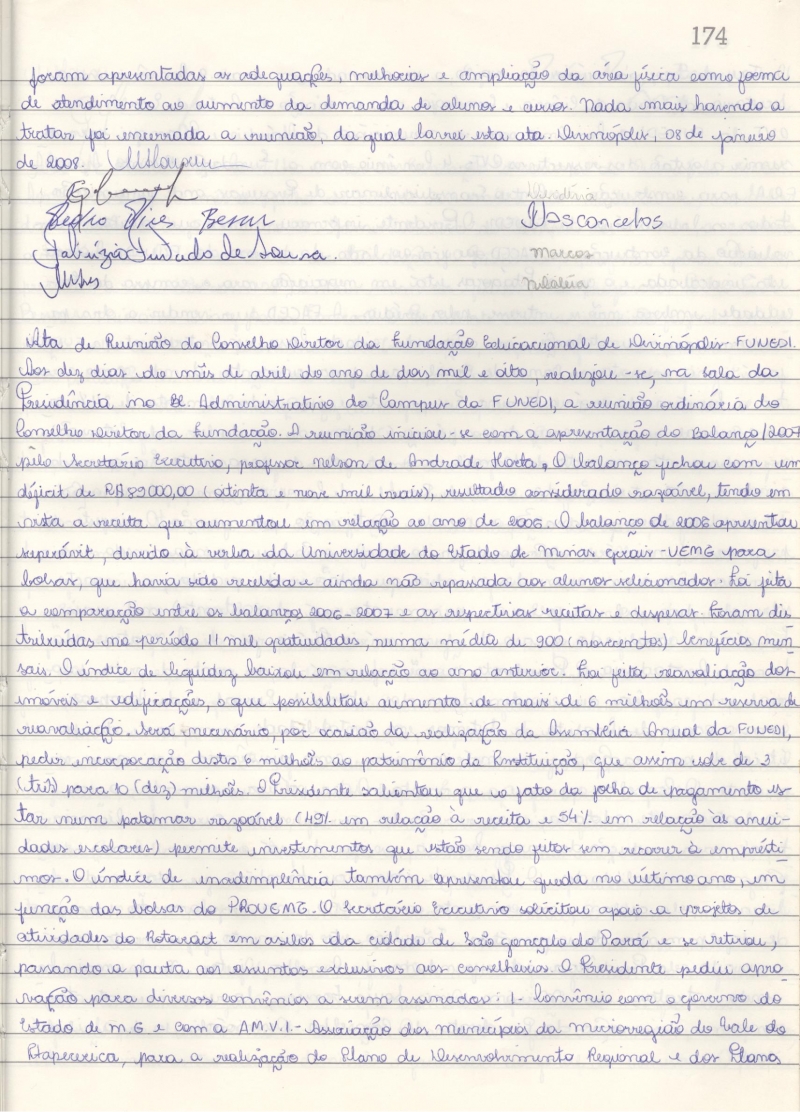 174
foram apresentadas as adequações, melhorias e ampliação da área física como forma
de atendimento ao aumento da demanda de alunos e cursos. Nada mais havendo a
tratar foi encerrada a reunião, da qual lavrei esta ata. Divinópolis, 08 de janeiro
de 2008.
Pedro Pires Bessa
Vasconcelos
Fabrízio Furtado de Sousa.
Marcos
Ata de Reunião do Conselho Diretor da Fundação Educacional de Divinópolis - FUNEDI.
Aos dez dias do mês de abril do ano de dois mil e oito, realizou-se, na sala da
Presidência no Bl. Administrativo do Campus da FUNEDI, a reunião ordinária do
Conselho Diretor da Fundação. A reunião iniciou-se com a apresentação do Balanço/2007
pelo Secretário Executivo, professor Nelson de Andrade Horta, O balanço fechou com um
déficit de R$ 89000,00 (oitenta e nove mil reais), resultado considerado razoável, tendo em
vista a receita que aumentou em relação ao ano de 2006. O balanço de 2006 apresentou
superávit, devido à verba da Universidade do Estado de Minas Gerais - UEMG para
bolsas, que havia sido recebida e ainda não repassada aos alunos selecionados. Foi feita
a comparação entre os balanços 2006-2007 e as respectivas receitas e despesas. Foram dis
tribuídas no período 11 mil gratuidades, numa média de 900 (novecentos) benefícios men
sais. O índice de liquidez baixou em relação ao ano anterior. Foi feita reavaliação dos
imóveis e edificações, o que possibilitou aumento de mais de 6 milhões em reserva de
reavaliação. Será necessário, por ocasião da realização da Assembléia Anual da FUNEDI,
pedir incorporação destes 6 milhões ao patrimônio da Instituição, que assim sobe de 3
(três) para 10 (dez) milhões. O Presidente salientou que o fato da folha de pagamento es
tar num patamar razoável (49% em relação à receita e 54% em relação às anui-
dades escolares) permite investimentos que estão sendo feitos sem recorrer à emprésti-
mos. O índice de inadimplência também apresentou queda no último ano, em
função das bolsas do PROUEMG. O Secretário Executivo solicitou apoio a projetos de
atividades do Rotaract em asilos da cidade de São Gonçalo do Pará e se retirou,
passando a pauta aos assuntos exclusivos aos conselheiros. O Presidente pediu apro-
vação para diversos convênios a serem assinados: 1- Convênio com o governo do
Estado de M.G e com a A.M.V.I.- Associação dos municípios da microrregião do Vale do
Itapecerica, para a realização do Plano de Desenvolvimento Regional e dos Planos